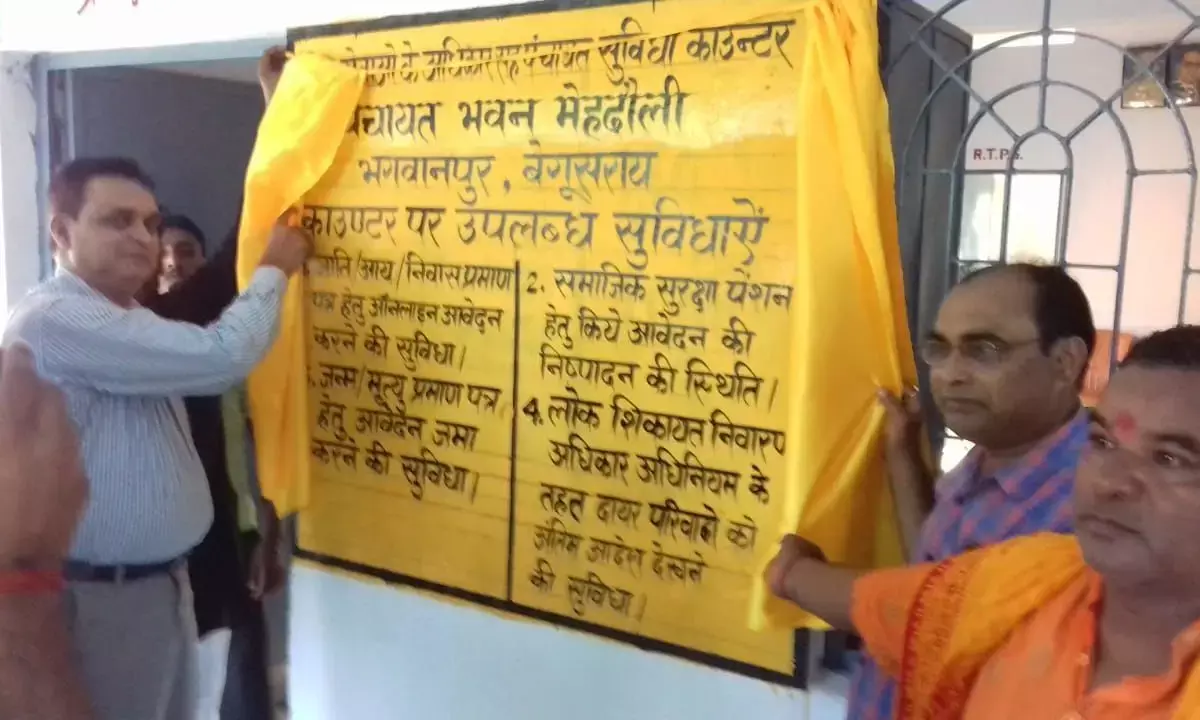 के अधिकार सह पंचायत सुविधा काउन्टर
पंचायत भवन मेहदौली
भगवानपुर, बेगूसराय
काउण्टर पर उपलब्ध सुविधाऐं
जाति/आय/निवास प्रमाण
पत्र हेतु ऑनलाइन आवेदन
करने की सुविधा।
2. समाजिक सुरक्षा पेंशन
हेतु किये आवेदन की
निष्पादन की स्थिति।
जन्म/मृत्यु प्रमाण पत्र
हेतु आवेदन जमा
करने की सुविधा।
4. लोक शिकायत निवारण
अधिकार अधिनियम के
तहत दायर परिवादो को
अंतिम आदेश देखने
की सुविधा।
R.T.P.S.